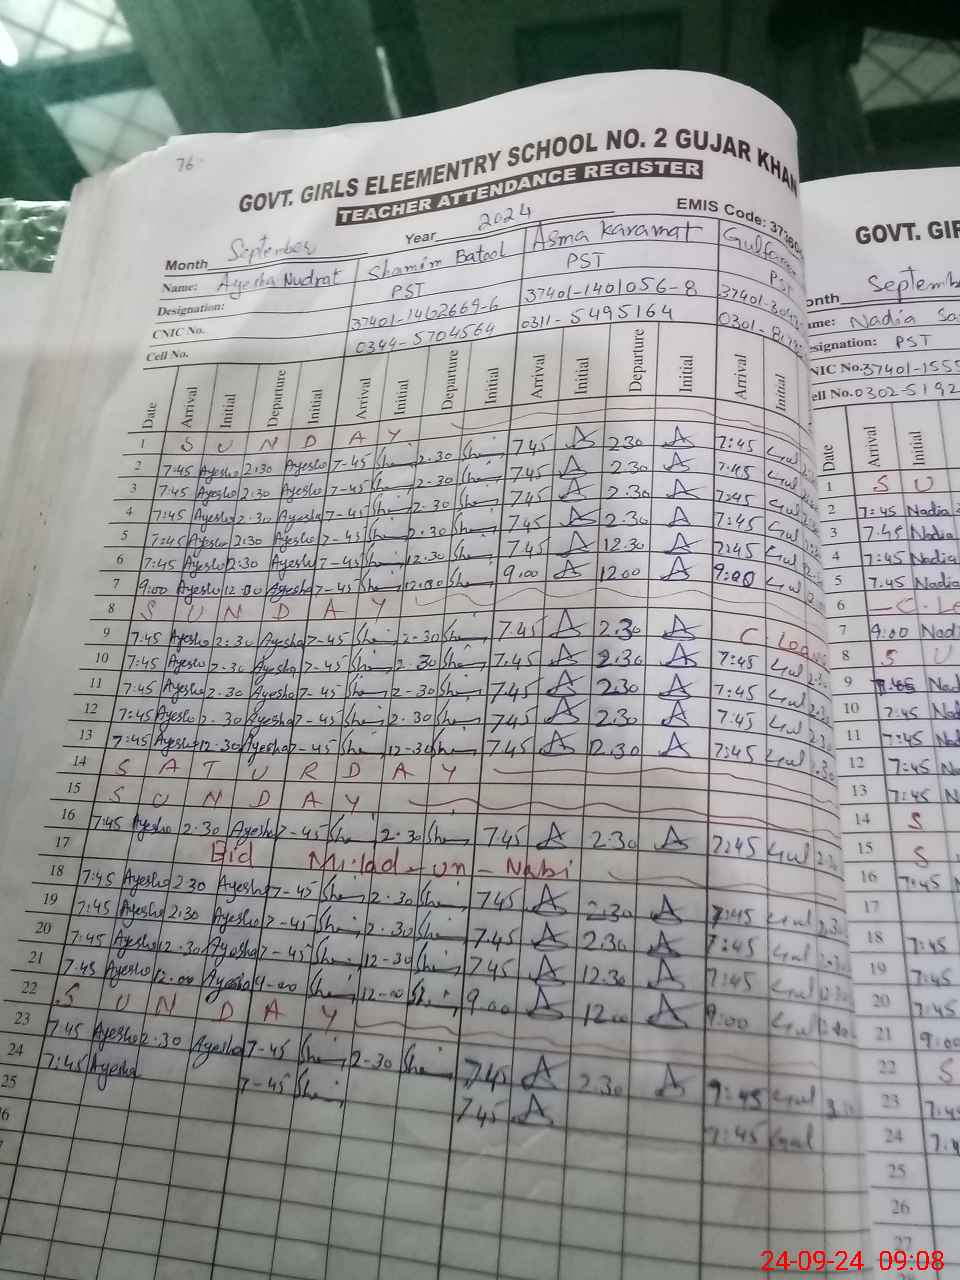 76
GOVT. GIRLS ELEEMENTRY SCHOOL NO. 2 GUJAR KHAN
TEACHER ATTENDANCE REGISTER
EMIS Code:
Month September Year 2024
Name: Ayesha Nudrat Shamim Batool Asma Karamat
Designation: PST PST PST
CNIC No. 37401-1462669-6 37401-1401056-8
Cell No. 0344-5704564 0311-5495164 0301-
Date Arrival Initial Departure Initial Arrival Initial Departure Initial Arrival Initial Departure Initial Arrival Initial
1 SUNDAY
2 7:45 Ayesha 2:30 Ayesha 7-45 She 2-30 She 7 45 A 2 30 A 7:45 Gul
3 7:45 Ayesha 2:30 Ayesha 7-45 She 2-30 She 7 45 A 2.30 A 7:45 Gul
4 7:45 Ayesha 2:30 Ayesha 7-45 She 2-30 She 7 45 A 2.30 A 7:45 Gul
5 7:45 Ayesha 2:30 Ayesha 7-45 She 2.30 She 7 45 A 2.30 A 7:45 Gul
6 7:45 Ayesha 2:30 Ayesha 7-45 She 12.30 She 7.45 A 12.30 A 7:45 Gul
7 9:00 Ayesha 12:00 Ayesha 7-45 She 12:00 She 9.00 A 12 00 A 9:00 Gul
8 SUNDAY
9 7:45 Ayesha 2:30 Ayesha 7-45 She 2-30 She 7.45 A 2.30 A C. Leave
10 7:45 Ayesha 2-30 Ayesha 7-45 She 2-30 She 7.45 A 2.30 A 7:45 Gul 2:30
11 7:45 Ayesha 2.30 Ayesha 7-45 She 2-30 She 7.45 A 2.30 A 7:45 Gul 2:30
12 7:45 Ayesha 2.30 Ayesha 7-45 She 2-30 She 7 45 A 2.30 A 7:45 Gul 2:30
13 7:45 Ayesha 12.30 Ayesha 7-45 She 12-30 She 7 45 A 12.30 A 7:45 Gul 2.30
14 SATURDAY
15 SUNDAY
16 7:45 Ayesha 2.30 Ayesha 7-45 She 2.30 She 7.45 A 2.30 A 7:45 Gul 2:30
17 Eid Milad-un-Nabi
18 7:45 Ayesha 2 30 Ayesha 7-45 She 2.30 She 7 45 A 2.30 A 7:45 Gul 2:30
19 7:45 Ayesha 2:30 Ayesha 7-45 She 2.30 She 7.45 A 2.30 A 7:45 Gul 2.30
20 7:45 Ayesha 12.30 Ayesha 7-45 She 12-30 She 7.45 A 12.30 A 7:45 Gul 12:30
21 7:45 Ayesha 12.00 Ayesha 9-00 She 12-00 She 9.00 A 12 00 A 9:00 Gul
22 SUNDAY
23 7:45 Ayesha 2.30 Ayesha 7-45 She 2-30 She 7.45 A 2.30 A Gul
24 7:45 Ayesha 7-45 She 7.45 A Gul
25
GOVT.
September
Nadia
PST
CNIC No. 37401-1555
Cell No. 0302-5192
Date Arrival Initial
1 S U
2 7:45 Nadia
3 7.45 Nadia
4 7:45 Nadia
5 7.45 Nadia
6 C. Le
7 9:00 Nad
8 S U
9 7.45 Nad
10 7:45 Nad
11 7:45 Na
12 7:45 N
13 7:45 N
14 S
15 S
16 7:45 N
17
18 7:45
19 7:45
20 7:45
21 9:00
22 S
23
24
25
26
27
24-09-24 09:08